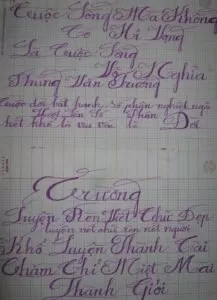 Cuộc Sống Mà Không
Có Hi Vọng
Là Cuộc Sống
Vô Nghĩa
Phùng Văn Trường
Cuộc đời bất hạnh số phận nghiệt ngã
Thân
Đời
Trường
Luyện Rèn Viết Chữ Đẹp
luyện nét chữ rèn nết người
Khổ Luyện Thành Tài
Chăm Chỉ Miệt Mài
Thành Giỏi